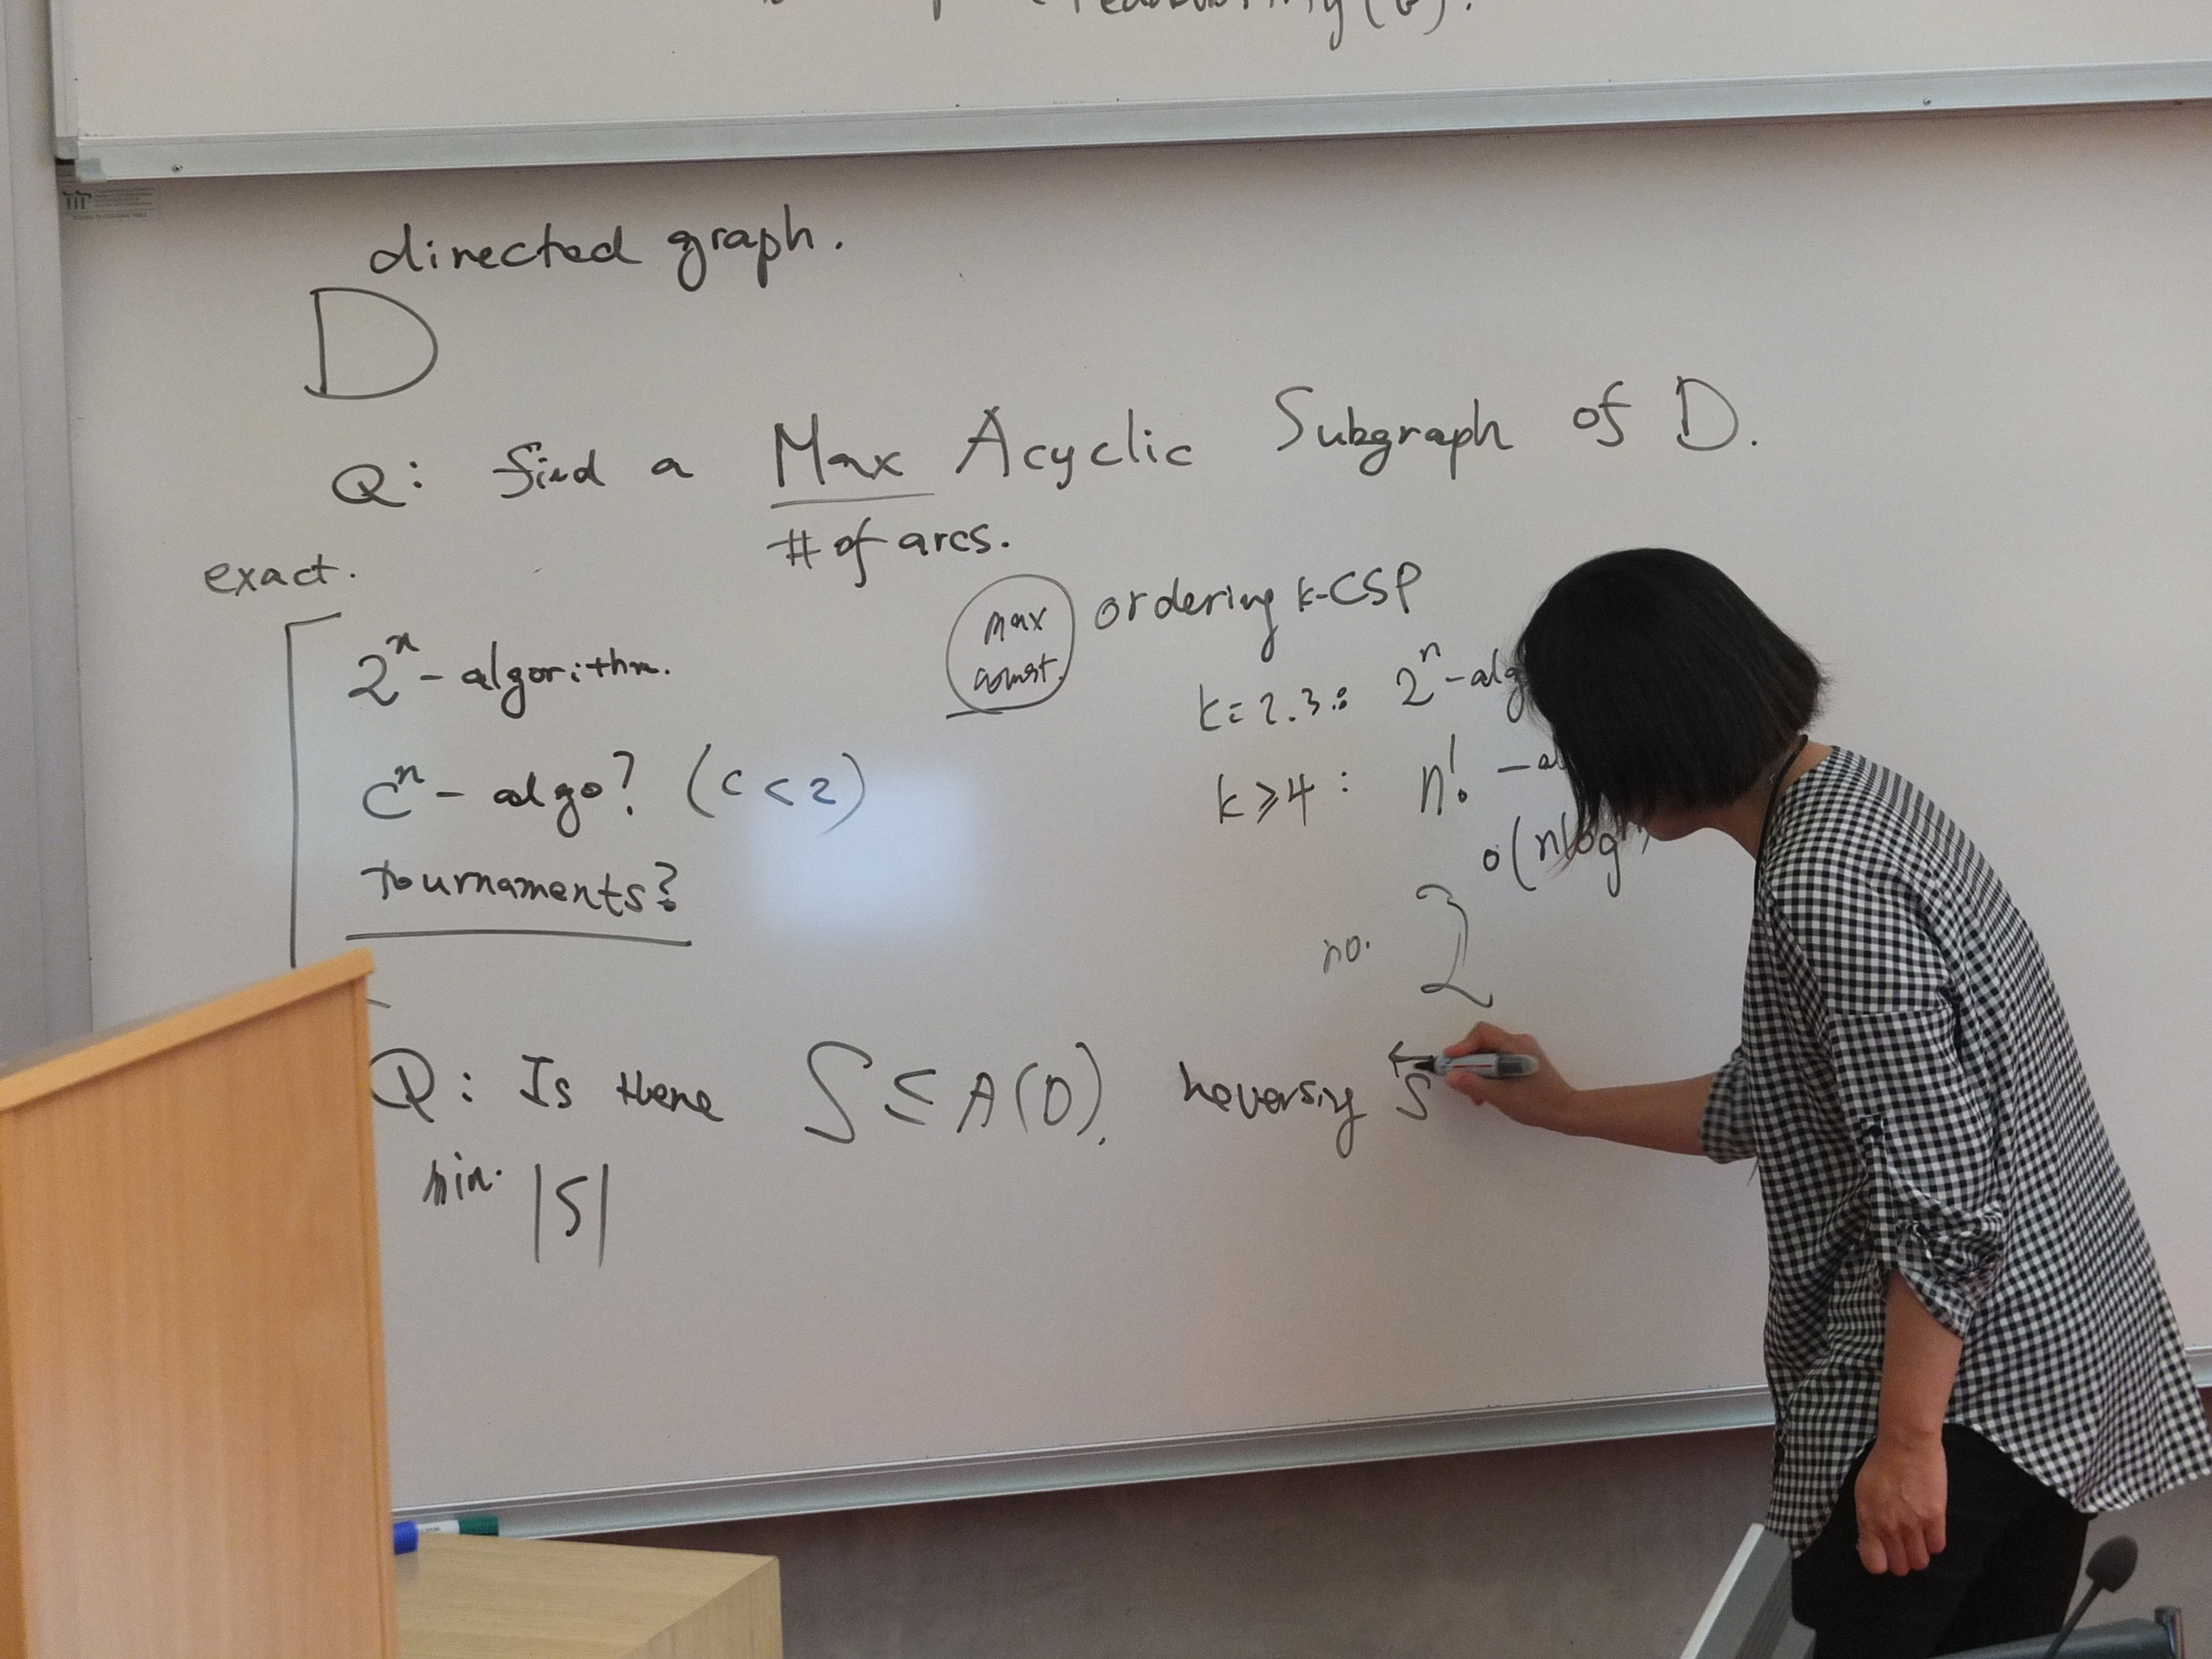 directed graph.
D
Q: find a Max Acyclic Subgraph of D.
# of arcs.
exact.
2^n - algorithm.
c^n - algo? (c < 2)
tournaments?
max const. ordering k-CSP
k=2.3: 2^n - alg
k ≥ 4: n! - al
no. 2^o(n log n
Q: Is there S ⊆ A(D), reversing S
min. |S|